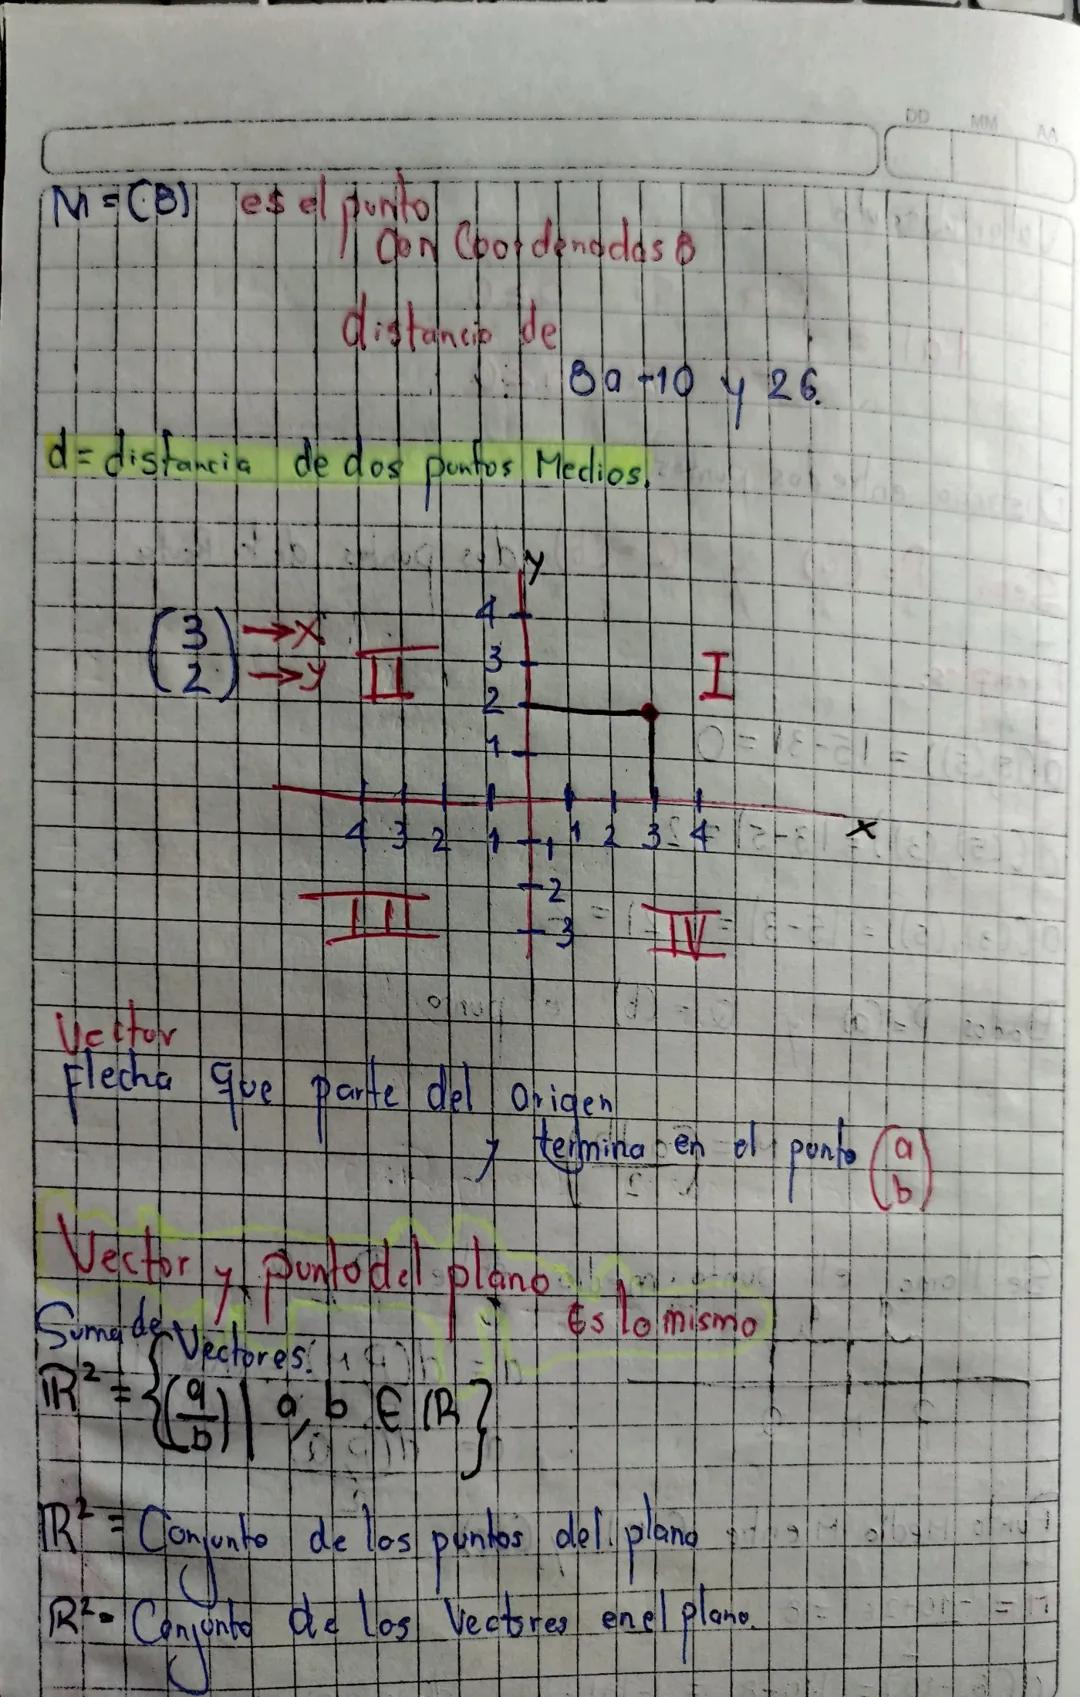 DD MM AA
M = (8) es el punto
con Coordenadas 8
distancia de
8 a -10 y 26.
d = distancia de dos puntos Medios.
y
4
(3) → x
(2) → y
II
3
I
2
1
4 3 2 1 1 2 3 4 x
1
2
III
3
IV
Vector
Flecha que parte del origen
y termina en el punto (a
b)
Vector y punto del plano
Es lo mismo
Suma de Vectores.
ℝ² = {(a/b) | a, b ∈ ℝ}
ℝ² = Conjunto de los puntos del plano
ℝ² = Conjunto de los Vectores en el plano.